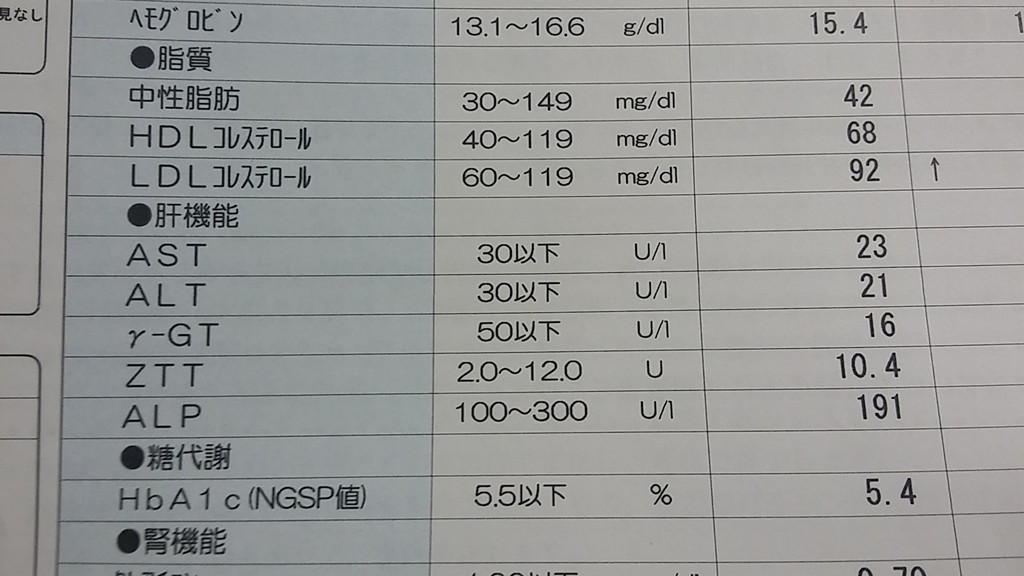 見なし
ﾍﾓｸﾞﾛﾋﾞﾝ 13.1～16.6 g/dl 15.4 1
●脂質
中性脂肪 30～149 mg/dl 42
HDLｺﾚｽﾃﾛｰﾙ 40～119 mg/dl 68
LDLｺﾚｽﾃﾛｰﾙ 60～119 mg/dl 92 ↑
●肝機能
AST 30以下 U/l 23
ALT 30以下 U/l 21
γ-GT 50以下 U/l 16
ZTT 2.0～12.0 U 10.4
ALP 100～300 U/l 191
●糖代謝
HbA1c(NGSP値) 5.5以下 % 5.4
●腎機能